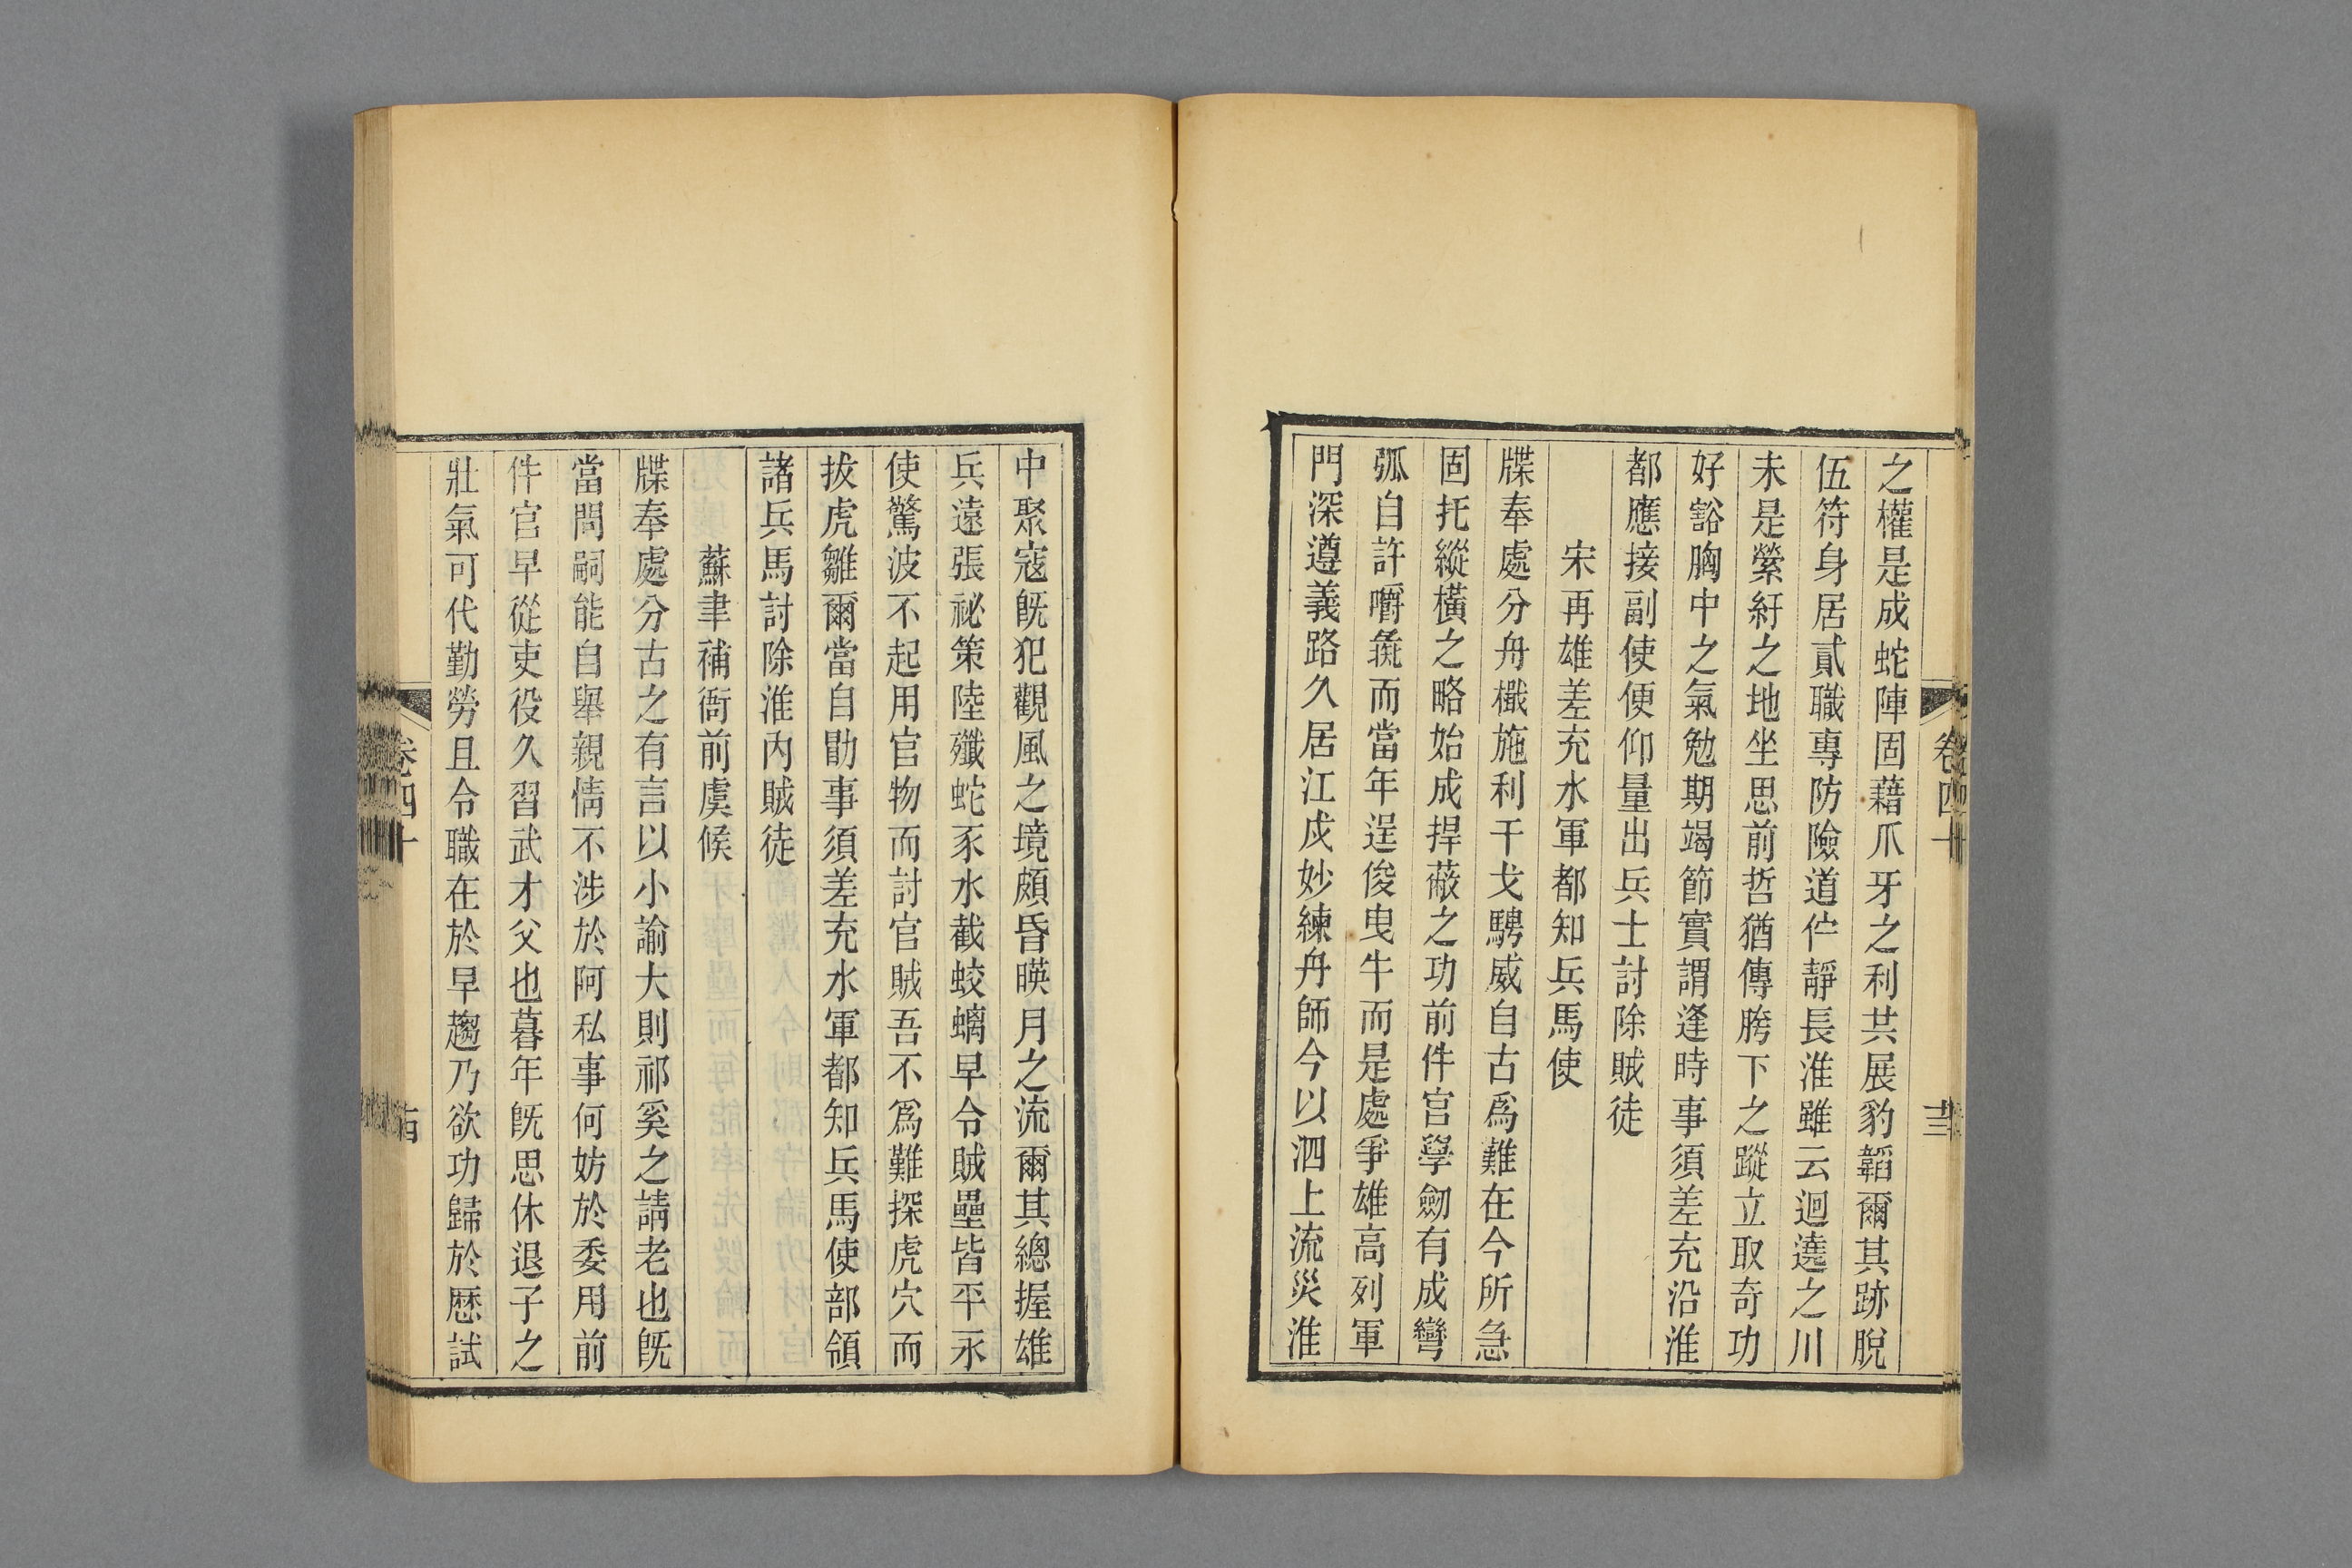 之權是成蛇陣固藉爪牙之利共展豹韜爾其跡脫
伍符身居貳職專防險道伫靜長淮雖云迴遶之川
未是縈紆之地坐思前哲猶傳胯下之蹤立取奇功
好豁胸中之氣勉期竭節實謂逢時事須差充沿淮
都應接副使便仰量出兵士討除賊徒
宋再雄差充水軍都知兵馬使
牒奉處分舟檝施利干戈騁威自古爲難在今所急
固托縱橫之略始成捍蔽之功前件官學劒有成彎
弧自許嚼㲋而當年逞俊曳牛而是處爭雄高列軍
門深遵義路久居江戍妙練舟師今以泗上流災淮
卷四十
十三
中聚寇旣犯觀風之境頗昏暎月之流爾其總握雄
兵遠張祕策陸殲蛇豕水截蛟螭早令賊壘皆平永
使驚波不起用官物而討官賊吾不爲難探虎穴而
拔虎雛爾當自勖事須差充水軍都知兵馬使部領
諸兵馬討除淮內賊徒
蘇聿補衙前虞候
牒奉處分古之有言以小諭大則祁奚之請老也旣
當問嗣能自舉親情不涉於阿私事何妨於委用前
件官早從吏役久習武才父也暮年旣思休退子之
壯氣可代勤勞且令職在於早趨乃欲功歸於歷試
卷四十